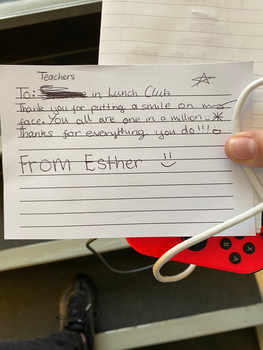 Teachers
To: in Lunch Club
Thank you for putting a smile on my
face. You all are one in a million.
Thanks for everything you do!!!
From Esther :)
X
A
B